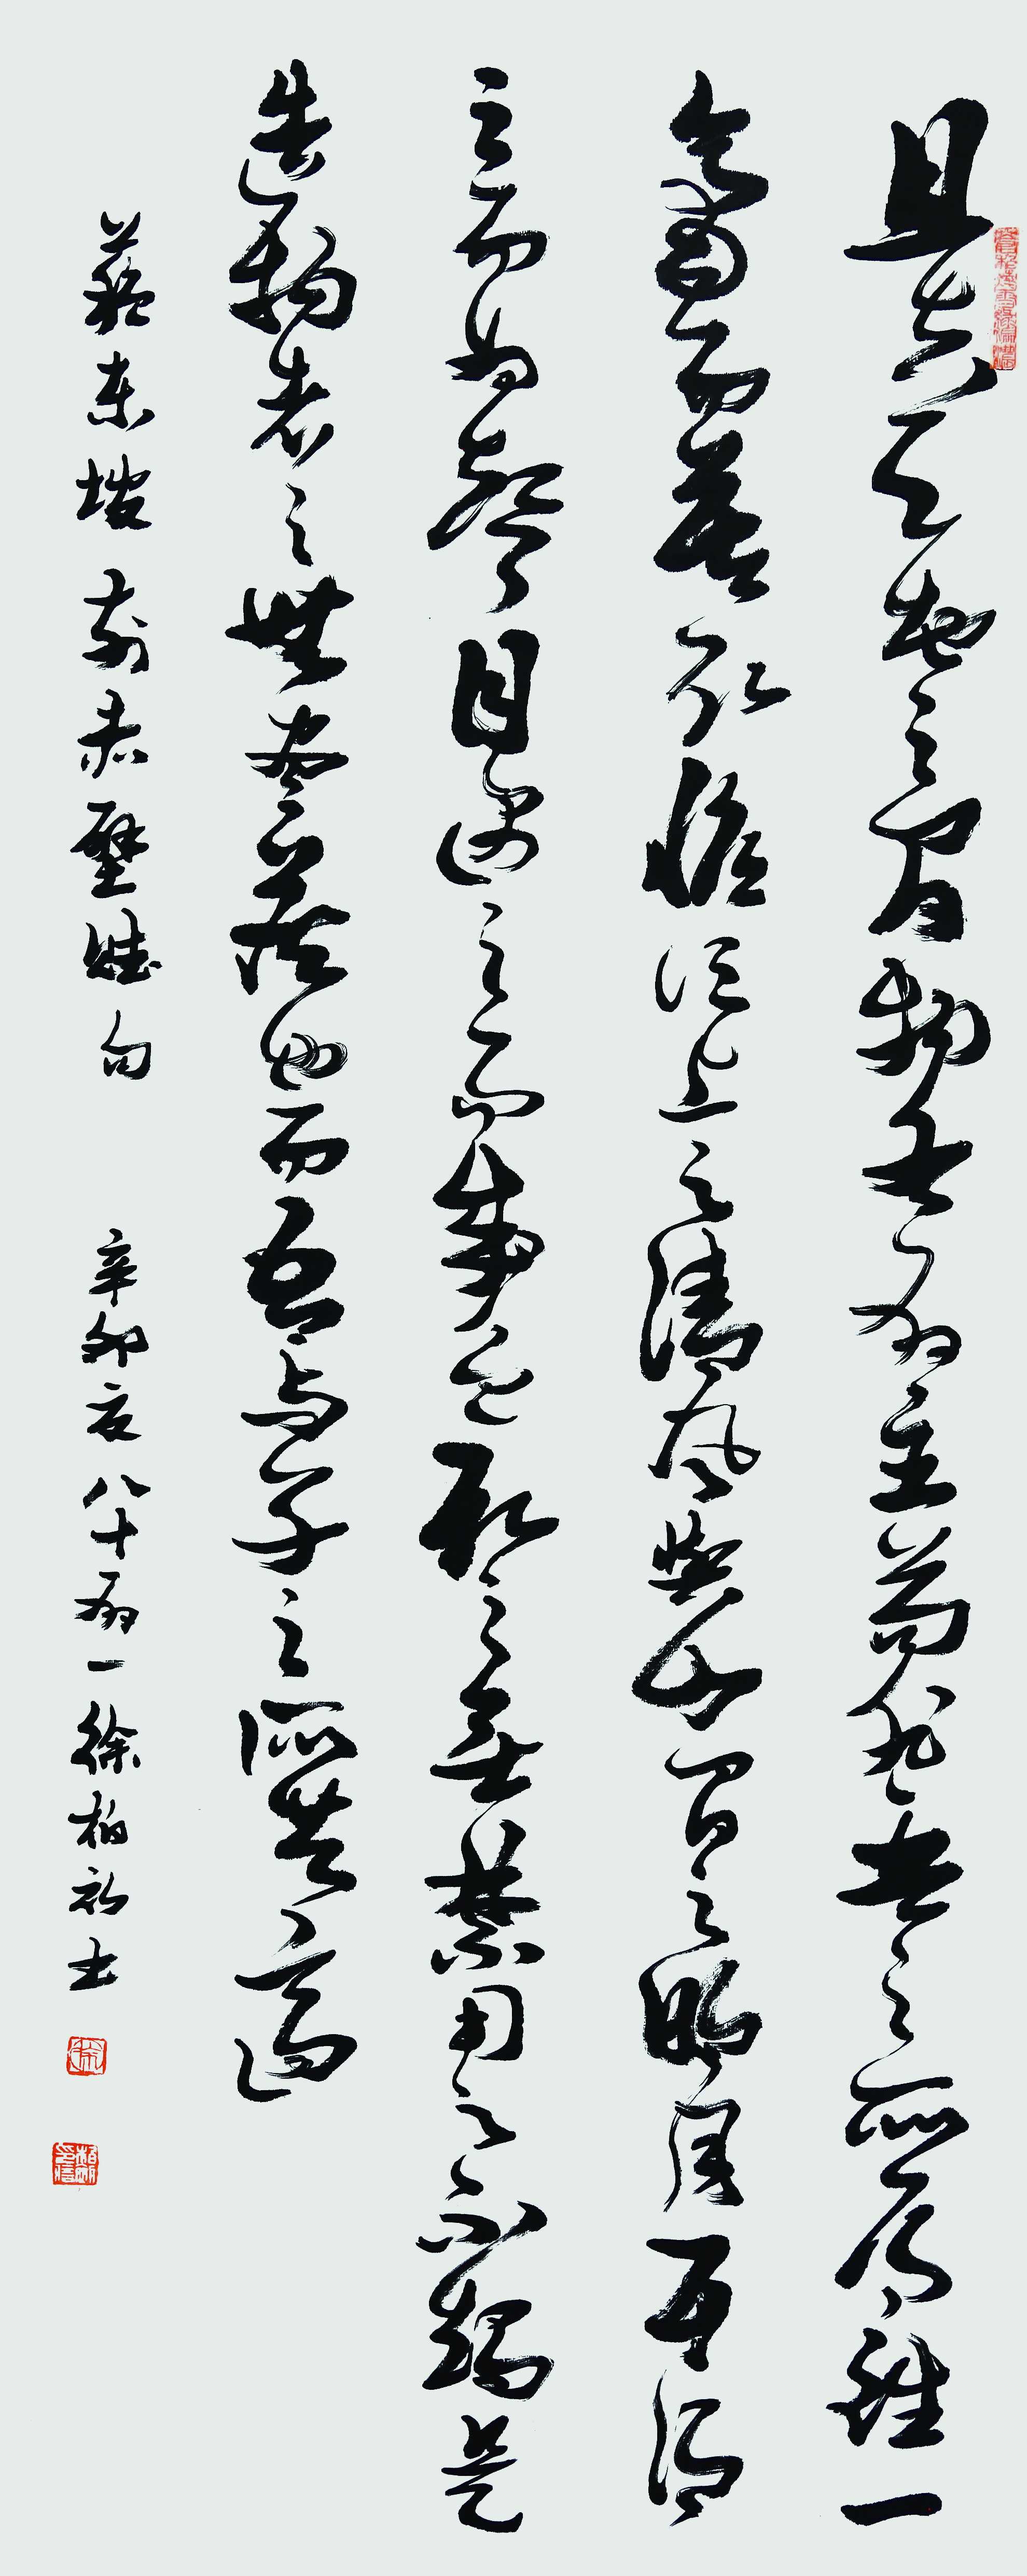 且夫天地之間物各有主苟非吾之所有雖一
毫而莫取惟江上之清風與山間之明月耳得
之而為聲目遇之而成色取之無禁用之不竭是
造物者之無盡藏也而吾与子之所共適
蘇東坡前赤壁賦句 辛卯夏八十有一徐柏